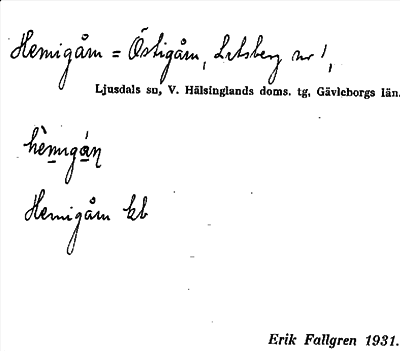 Hemigåln = Östigåln, Letsberg nr 1,
Ljusdals sn, V. Hälsinglands doms. tg, Gävleborgs län.
hè̱migá̱ṇ
Hemigåln kb
Erik Fallgren 1931.